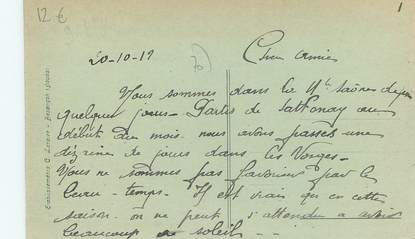 12 €
1
20-10-19
70
Chère amie
Nous sommes dans la Hte Saône depuis
quelques jours - Partis de Sathonay au
début du mois. nous avons passés une
dizaine de jours dans les Vosges -
Nous ne sommes pas favorisés par le
beau - temps. Il est vrai qu'en cette
saison on ne peut s'attendre à avoir
beaucoup de soleil -
Etablissements C. Lardier - Besançon (Doubs)